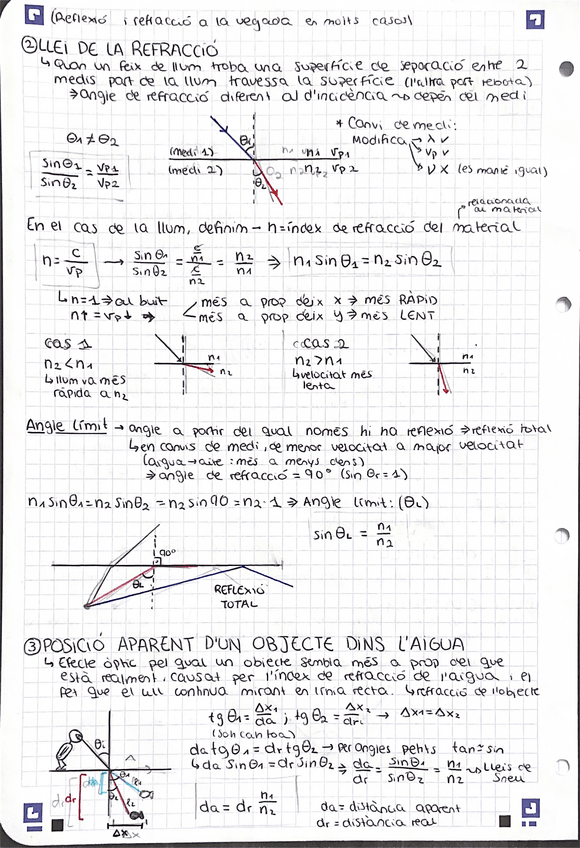 (Reflexió i refracció a la vegada en molts casos)
② LLEI DE LA REFRACCIÓ
↳ Quan un feix de llum troba una superfície de separació entre 2
medis part de la llum travessa la superfície (l'altra part rebota)
⇒ angle de refracció diferent al d'incidència ↝ depèn del medi
θ1 ≠ θ2
sin θ1 / sin θ2 = vp1 / vp2
(medi 1) n1 vp1
(medi 2) n2 vp2
θ1
θ2
* Canvi de medi:
Modifica → λ ✓
vp ✓
ν X (es manté igual)
En el cas de la llum, definim → n = índex de refracció del material
relacionada al material
n = c / vp → sin θ1 / sin θ2 = (c/n1) / (c/n2) = n2 / n1 ⇒ n1 sin θ1 = n2 sin θ2
↳ n=1 ⇒ al buit
n↑ = vp↓ ⇒ més a prop deix x → més RÀPID
més a prop deix y → més LENT
cas 1
n2 < n1
↳ llum va més
ràpida a n2
n1
n2
cas 2
n2 > n1
↳ velocitat més
lenta
n1
n2
Angle límit → angle a partir del qual només hi ha reflexió ⇒ reflexió total
↳ en canvis de medi, de menor velocitat a major velocitat
(aigua → aire : més a menys dens)
⇒ angle de refracció = 90° (sin θr = 1)
n1 sin θ1 = n2 sin θ2 = n2 sin 90 = n2 · 1 ⇒ Angle límit: (θL)
sin θL = n1 / n2
90°
θL
REFLEXIÓ
TOTAL
③ POSICIÓ APARENT D'UN OBJECTE DINS L'AIGUA
↳ Efecte òptic pel qual un objecte sembla més a prop del que
està realment, causat per l'índex de refracció de l'aigua i el
fet que el ull continua mirant en línia recta. ↳ refracció de l'objecte
tg θ1 = Δx1 / da ; tg θ2 = Δx2 / dr → Δx1 = Δx2
da tg θ1 = dr tg θ2 → per angles petits tan ≃ sin
↳ da sin θ1 = dr sin θ2 ⇒ da / dr = sin θ1 / sin θ2 = n1 / n2 ↝ Lleis de
Snell
da = dr n1 / n2
da = distància aparent
dr = distància real
θi
θ1
θ2
dr
Δx